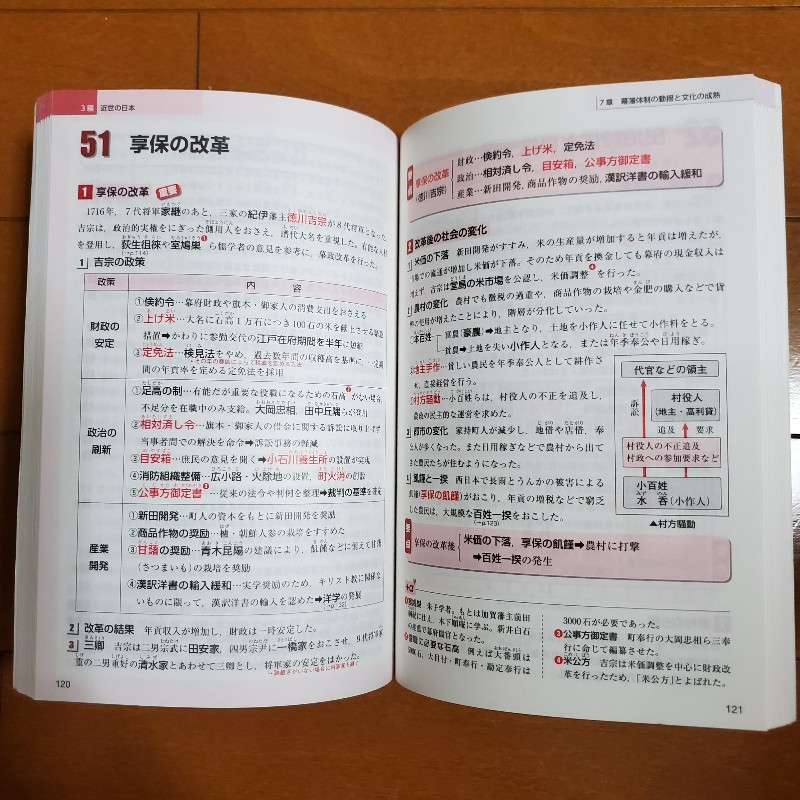 3編 近世の日本
51 享保の改革
1 享保の改革 重要
1716年，7代将軍家継のあと，三家の紀伊藩主徳川吉宗が8代将軍となった。
吉宗は，政治的実権をにぎった側用人をおさえ，譜代大名を重視した。有能な人材
を登用し，荻生徂徠や室鳩巣❶ら儒学者の意見を参考に，幕政改革を行った。
(→p.114)
1 吉宗の政策
政策 内容
財政の安定
①倹約令…幕府財政や旗本・御家人の消費支出をおさえる
②上げ米…大名に石高1万石につき100石の米を献上させる
措置➡かわりに参勤交代の江戸在府期間を半年に短縮
③定免法…検見法をやめ，過去数年間の収穫高を基準に，一定期
間の年貢率を定める定免法を採用
政治の刷新
①足高の制…有能だが重要な役職になるための石高❷がない場合，
不足分を在職中のみ支給。大岡忠相，田中丘隅らが活用
②相対済し令…旗本・御家人の借金に関する訴訟は取り上げず
当事者間での解決を命令➡訴訟事務の軽減
③目安箱…庶民の意見を聞く➡小石川養生所の設置が実現
④消防組織整備…広小路・火除地の設置，町火消の創設
⑤公事方御定書❸…従来の法令や判例を整理➡裁判の基準を
産業開発
①新田開発…町人の資本をもとに新田開発を奨励
②商品作物の奨励…櫨・朝鮮人参の栽培をすすめた
③甘藷の奨励…青木昆陽の建議により，飢饉などに備えて甘藷
(さつまいも)の栽培を奨励
④漢訳洋書の輸入緩和…実学奨励のため，キリスト教に関係な
いものに限って，漢訳洋書の輸入を認めた➡洋学の発展
2 改革の結果 年貢収入が増加し，財政は一時安定した。
3 三卿 吉宗は二男宗武に田安家，四男宗尹に一橋家をおこさせ，9代将軍家
重の二男重好の清水家とあわせて三卿とし，将軍家の安定をはかった。
120
7章 幕藩体制の動揺と文化の成熟
享保の改革
(徳川吉宗)
財政…倹約令，上げ米，定免法
政治…相対済し令，目安箱，公事方御定書
産業…新田開発，商品作物の奨励，漢訳洋書の輸入緩和
2 改革後の社会の変化
1 米価の下落 新田開発がすすみ，米の生産量が増加すると年貢は増えたが，
市場での流通が増加し米価が下落。そのため年貢を換金しても幕府の現金収入は
増えず，吉宗は堂島の米市場を公認し，米価調整❹を行った。
農村の変化 農村でも散税の過重や，商品作物の栽培や金肥の購入などで貨
幣の使用が増えたことにより，階層が分化していった。
本百姓
富農(豪農)➡地主となり，土地を小作人に任せて小作料をとる。
貧農➡土地を失い小作人となる，または年季奉公や日用稼ぎ。
地主手作…貧しい農民を年季奉公人として耕作さ
せ，直接経営を行う。
村方騒動…小百姓らは，村役人の不正を追及し，
農政の民主的な運営を求めた。
都市の変化 家持町人が減少し，地借や店借，奉
公人が多くなった。また日用稼ぎなどで農村から出て
きた農民たちが住むようになった。
飢饉と一揆 西日本で長雨とうんかの被害による
飢饉(享保の飢饉)がおこり，年貢の増税などで窮乏
した農民は，大規模な百姓一揆をおこした。
(→p.123)
代官などの領主
訴訟
村役人
(地主・高利貸)
追及 要求
村役人の不正追及
村政への参加要求など
小百姓
水呑(小作人)
▲村方騒動
要点
享保の改革後
米価の下落，享保の飢饉➡農村に打撃
➡百姓一揆の発生
❶室鳩巣 朱子学者。もとは加賀藩主前田
綱紀に仕え，木下順庵に学ぶ。新井白石
の推薦で幕府儒官となった。
❷役職に必要な石高 例えば大番頭は
5000石，大目付・町奉行・勘定奉行は
3000石が必要であった。
❸公事方御定書 町奉行の大岡忠相ら三奉
行に命じて編纂させた。
❹米公方 吉宗は米価調整を中心に財政改
革を行ったため，「米公方」とよばれた。
121